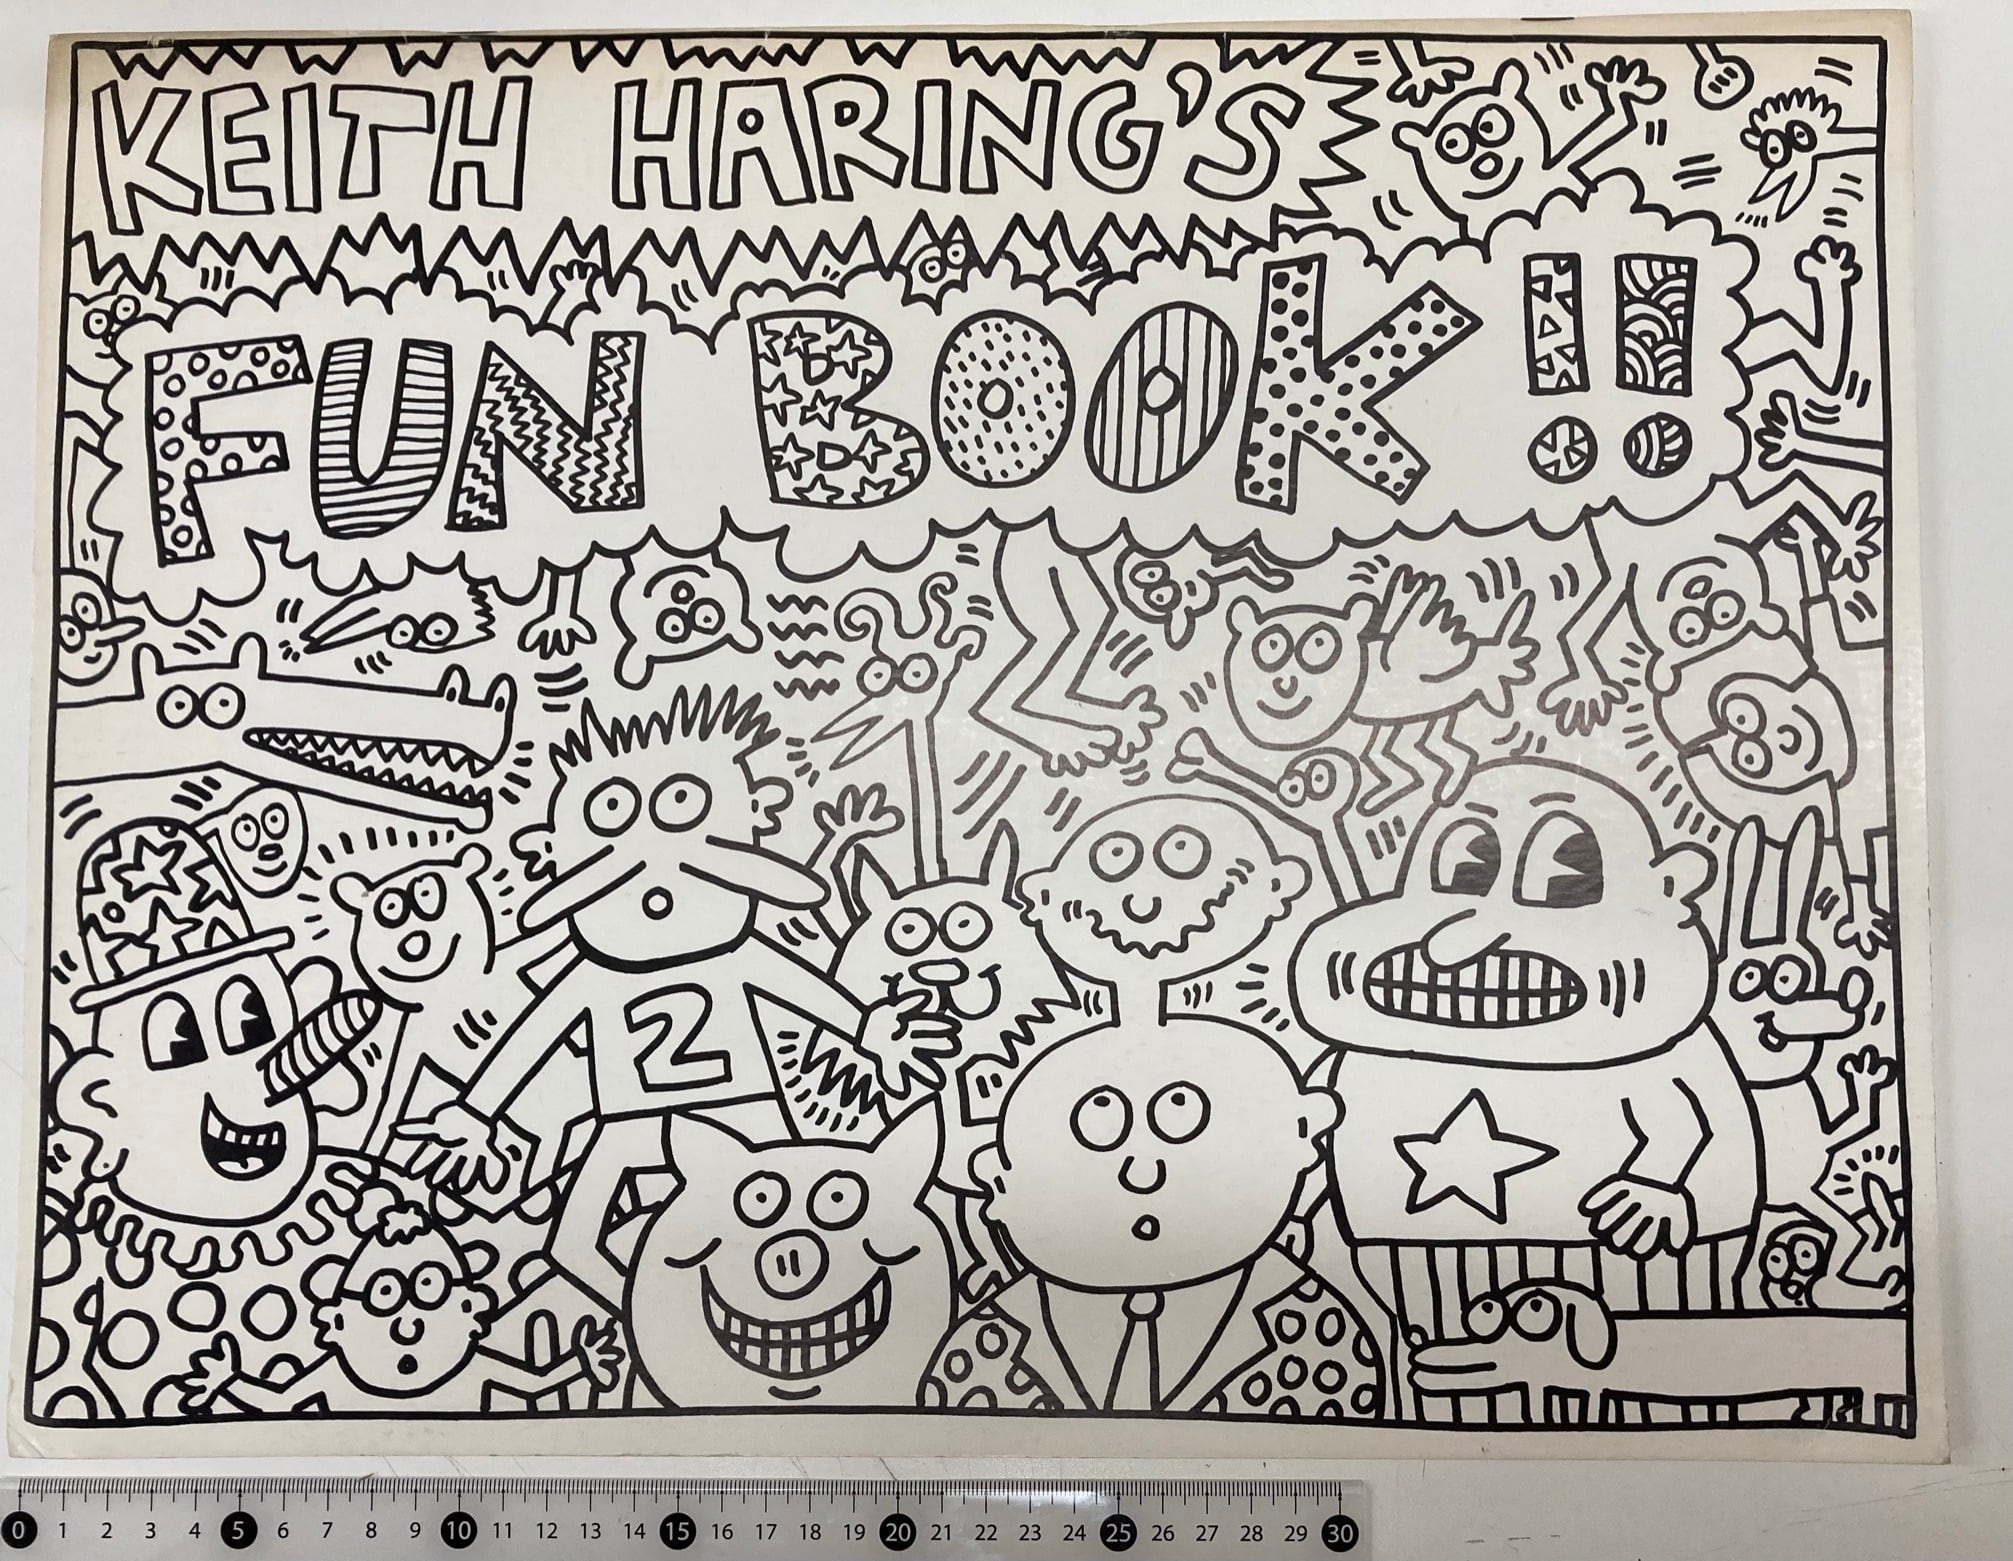 KEITH HARING'S
FUN BOOK!!
2
0 1 2 3 4 5 6 7 8 9 10 11 12 13 14 15 16 17 18 19 20 21 22 23 24 25 26 27 28 29 30